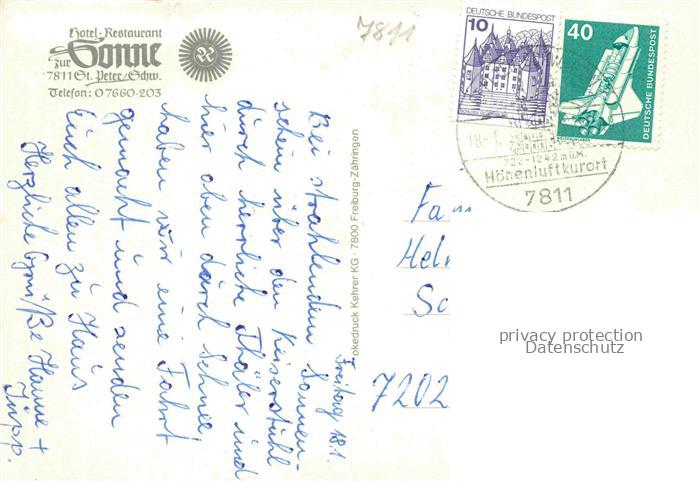 Hotel-Restaurant
zur Sonne
7811 St. Peter/Schw.
Telefon: 07660-203
7811
10
DEUTSCHE BUNDESPOST
40
DEUTSCHE BUNDESPOST
18.1.
722-1242 m ü.M.
Höhenluftkurort
7811
Freitag 18.1.
Bei strahlendem Sonnen-
schein über den Kaiserstuhl
durch herrliche Thäler und
hier oben durch Schnee
haben wir eine Fahrt
gemacht und senden
Euch allen zu Haus
Herzliche Grüße Hanne +
Jupp.
okedruck Kehrer KG · 7800 Freiburg-Zähringen
Fa
Hel
Sc
7202
privacy protection
Datenschutz